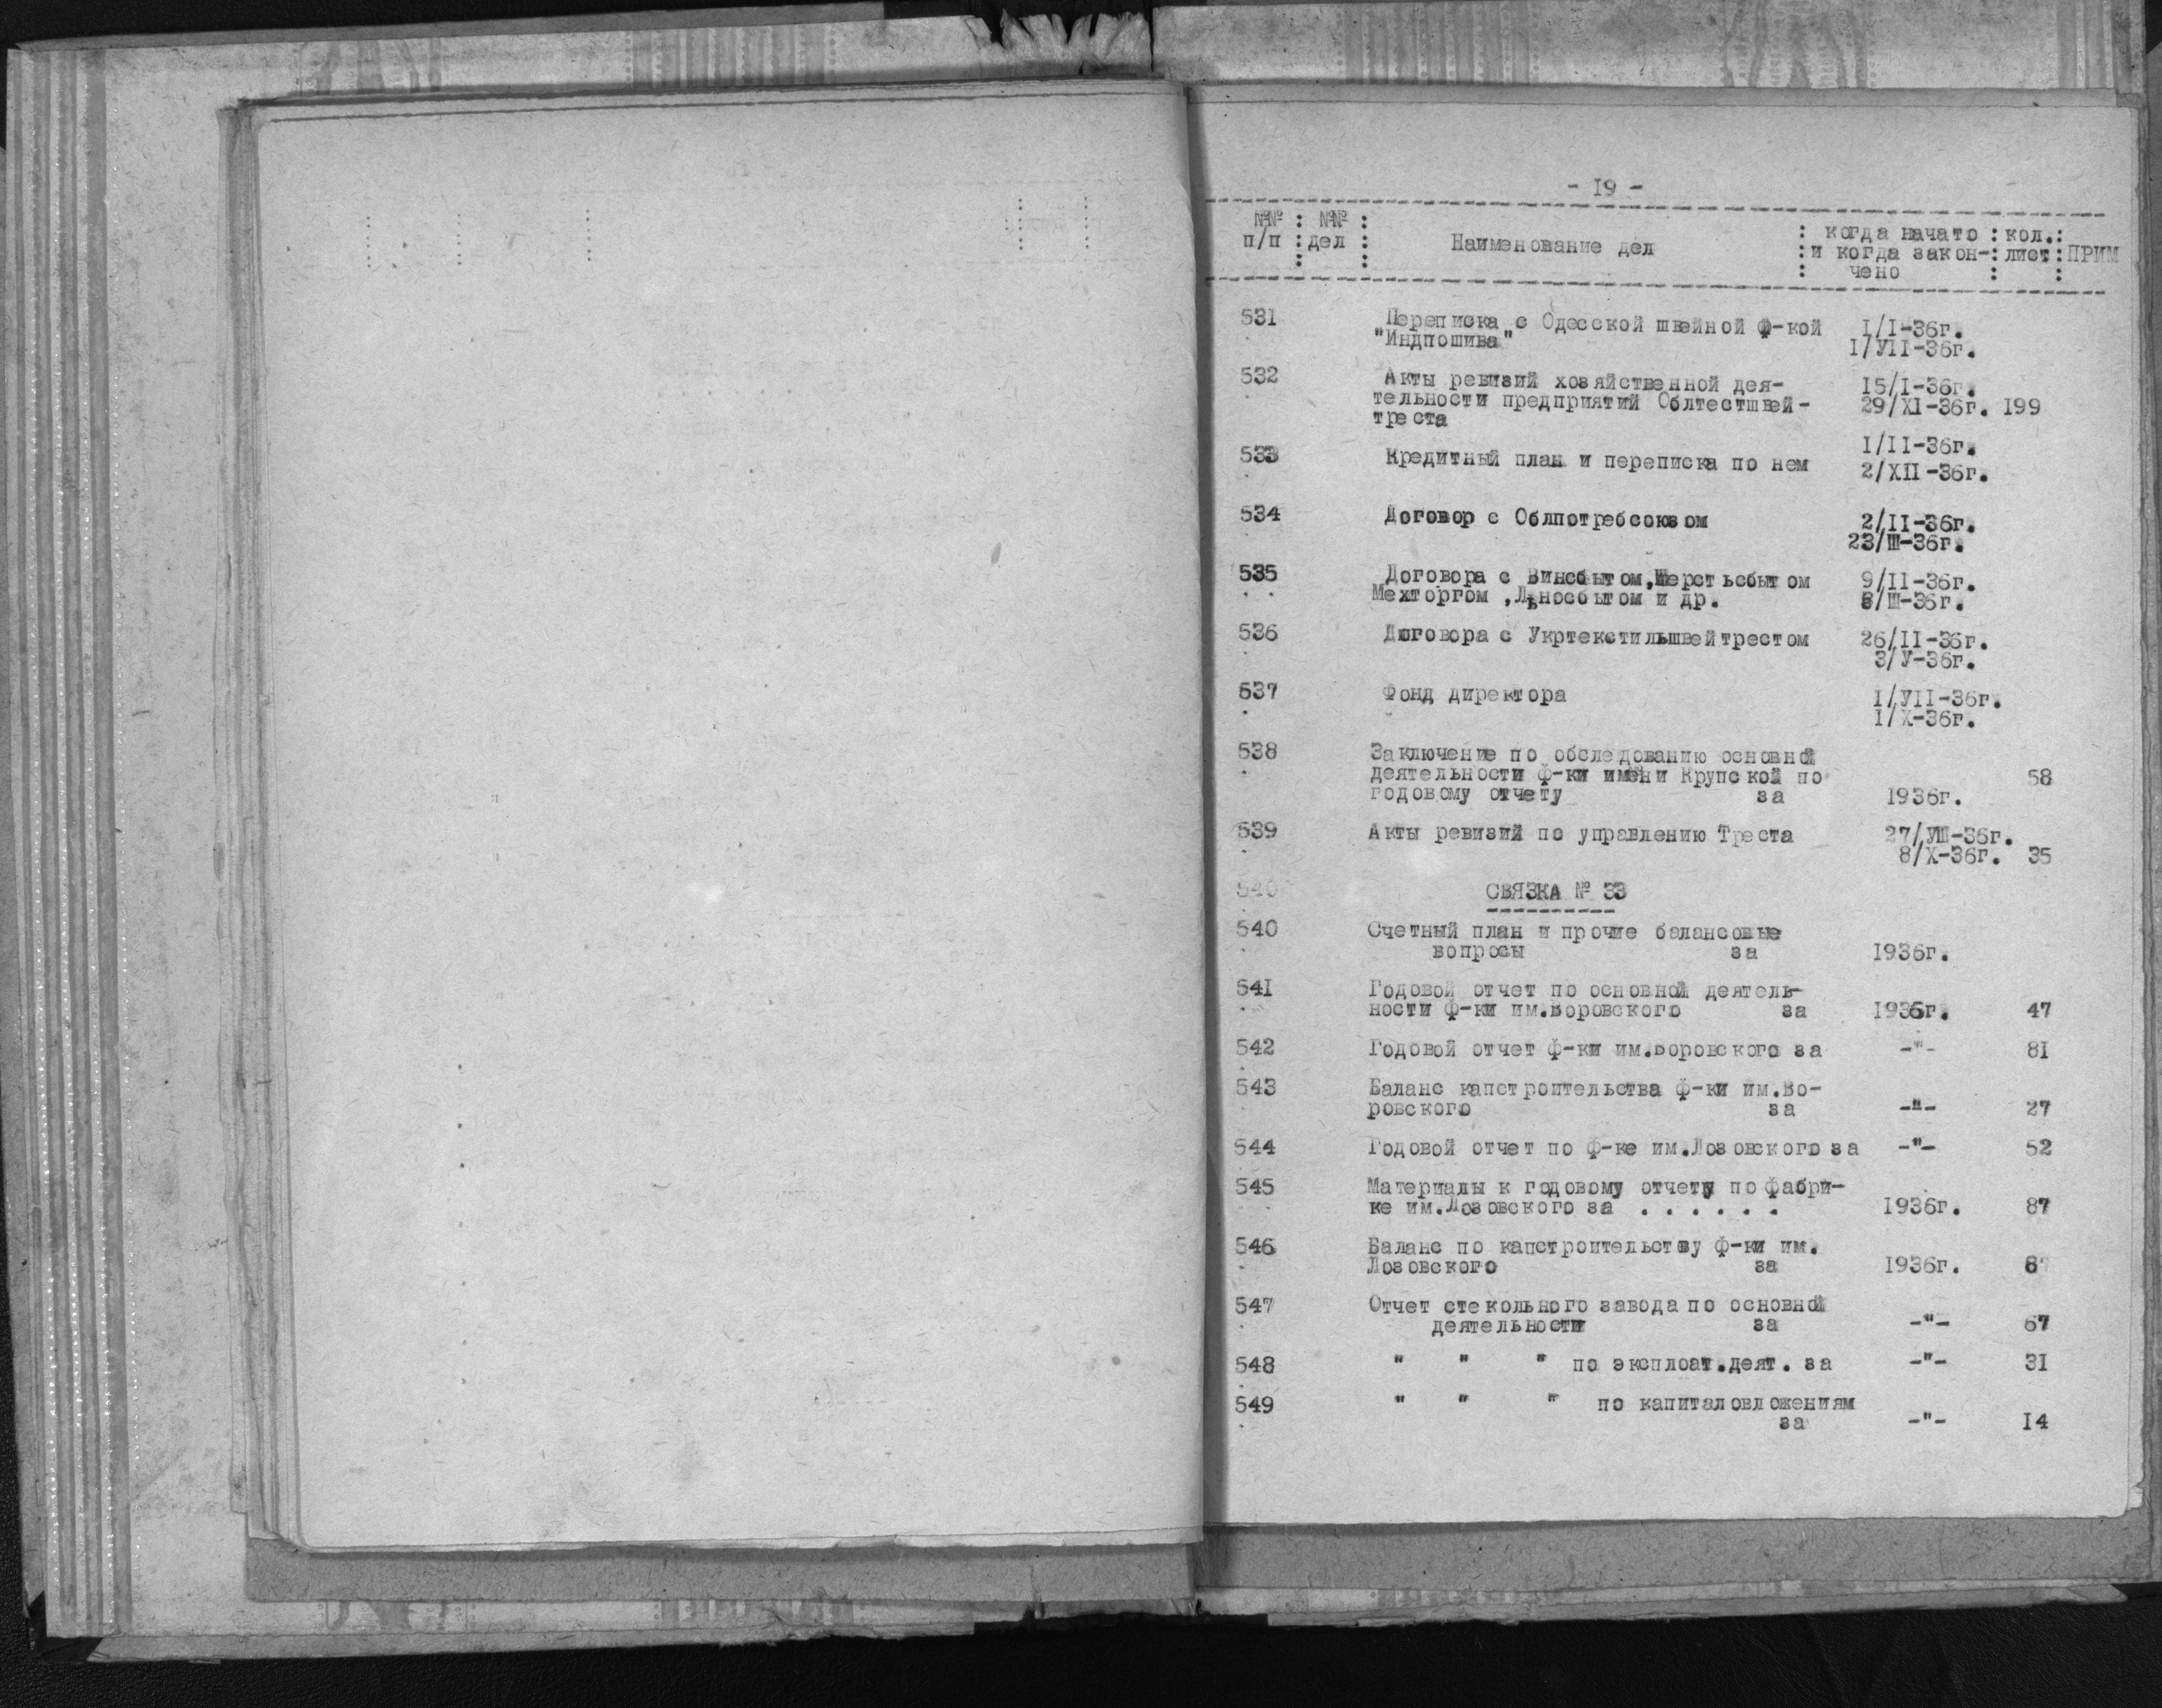 - I9 -
№№ : №№ :
п/п : дел : Наименование дел : когда начато : кол. : ПРИМ
: и когда закон- : лист :
чено
531 Переписка с Одесской швейной ф-кой I/I-36г.
"Индпошива" I/УII-36г.
532 Акты ревизий хозяйственной дея- I5/I-36г.
тельности предприятий Облтестшвей- 29/XI-36г. I99
треста
I/II-36г.
533 Кредитный план и переписка по нем 2/XII-36г.
534 Договор с Облпотребсоюзом 2/II-36г.
23/Ш-36г.
535 Договора с Винсбытом,Шерстьсбытом 9/II-36г.
Мехторгом ,Льносбытом и др. 8/Ш-36г.
536 Договора с Укртекстильшвейтрестом 26/II-36г.
3/У-36г.
537 Фонд директора I/УII-36г.
I/X-36г.
538 Заключение по обследованию основной
деятельности ф-ки имени Крупской по 58
годовому отчету за I936г.
539 Акты ревизий по управлению Треста 27/УШ-36г.
8/X-36г. 35
540 СВЯЗКА № 33
540 Счетный план и прочие балансовые
вопросы за I936г.
541 Годовой отчет по основной деятель-
ности ф-ки им.Воровского за I936г. 47
542 Годовой отчет ф-ки им.Воровского за -"- 8I
543 Баланс капстроительства ф-ки им.Во-
ровского за -"- 27
544 Годовой отчет по ф-ке им.Лозовского за -"- 52
545 Материалы к годовому отчету по фабри-
ке им.Лозовского за . . . . . . I936г. 87
546 Баланс по капстроительству ф-ки им.
Лозовского за I936г. 67
547 Отчет стекольного завода по основной
деятельности за -"- 67
548 " " " по эксплоат.деят. за -"- 3I
549 " " " по капиталовложениям
за -"- I4